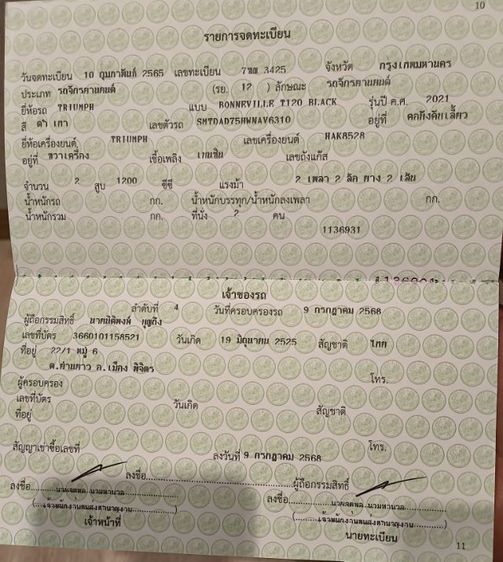 10
รายการจดทะเบียน
วันจดทะเบียน 10 กุมภาพันธ์ 2565 เลขทะเบียน 7ขผ 3425 จังหวัด กรุงเทพมหานคร
ประเภท รถจักรยานยนต์ (รย. 12 ) ลักษณะ รถจักรยานยนต์
ยี่ห้อรถ TRIUMPH แบบ BONNEVILLE T120 BLACK รุ่นปี ค.ศ. 2021
สี ดำ เทา เลขตัวรถ SMTDAD75HWNAV6310 อยู่ที่ คอถังคันเลี้ยว
ยี่ห้อเครื่องยนต์ TRIUMPH เลขเครื่องยนต์ HAK8528
อยู่ที่ ขวาเครื่อง เชื้อเพลิง เบนซิน เลขถังแก๊ส
จำนวน 2 สูบ 1200 ซีซี แรงม้า 2 เพลา 2 ล้อ ยาง 2 เส้น
น้ำหนักรถ กก. น้ำหนักบรรทุก/น้ำหนักลงเพลา กก.
น้ำหนักรวม กก. ที่นั่ง 2 คน
1136931
เจ้าของรถ
ลำดับที่ 4 วันที่ครอบครองรถ 9 กรกฎาคม 2568
ผู้ถือกรรมสิทธิ์
เลขที่บัตร 3660101158521 วันเกิด 19 มิถุนายน 2525 สัญชาติ ไทย
ที่อยู่ 22/1 หมู่ 6 โทร.
ต.ย่านยาว อ.เมือง พิจิตร
ผู้ครอบครอง
เลขที่บัตร วันเกิด สัญชาติ
ที่อยู่ โทร.
สัญญาเช่าซื้อเลขที่ ลงวันที่ 9 กรกฎาคม 2568
ลงชื่อ ผู้ถือกรรมสิทธิ์
ลงชื่อ ลงชื่อ
(เจ้าพนักงานขนส่งชำนาญงาน) (เจ้าพนักงานขนส่งชำนาญงาน)
เจ้าหน้าที่ นายทะเบียน
11